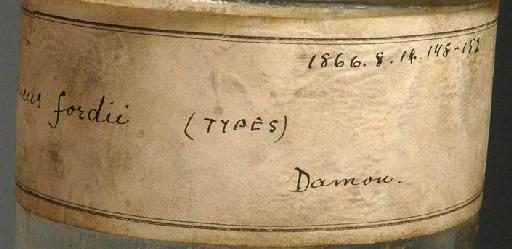 1866.8.14.148-152
fordii (TYPES)
Damon.